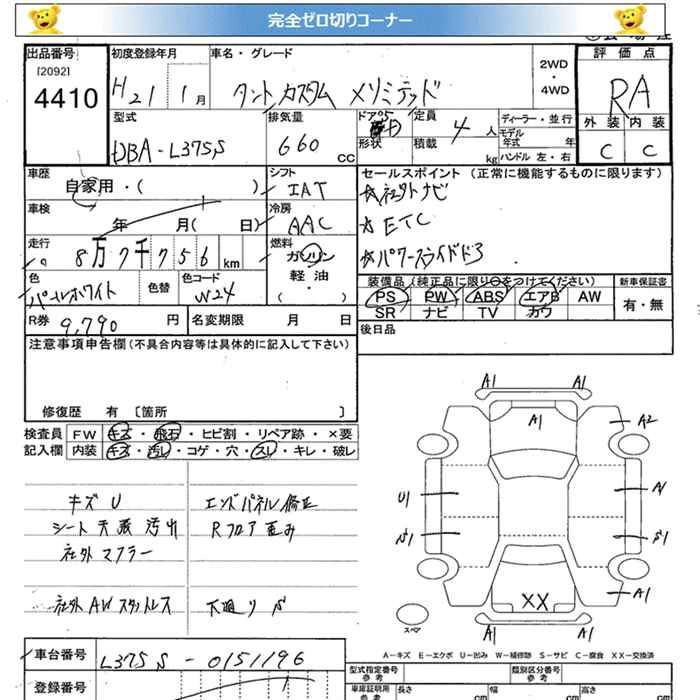 完全ゼロ切りコーナー
出品番号
[2092]
4410
初度登録年月
H21 1月
車名・グレード
タント カスタム メリミテッド
2WD
・
4WD
評価点
RA
外装 内装
C C
型式
DBA-L375S
排気量
660 cc
ドア
形状
定員
4 人
積載
kg
ディーラー・並行
モデル年式 年
ハンドル 左・右
車歴
自家用・( )
シフト
IAT
セールスポイント (正常に機能するものに限ります)
☆社外ナビ
☆ETC
☆パワースライドドア
車検
年 月( 日)
冷房
AAC
走行
8万7千756 km
燃料
ガソリン
軽・油
( )
色
パールホワイト
色替
色コード
W24
装備品 (純正品に限り○をつけてください)
PS PW ABS エアB AW
SR ナビ TV カワ
新車保証書
有・無
R券 9,790 円
名変期限 月 日
後日品
注意事項申告欄 (不具合内容等は具体的に記入して下さい)
修復歴 有 〔箇所 〕
検査員 FW キズ・飛石・ヒビ割・リペア跡・×要
記入欄 内装 キズ・汚レ・コゲ・穴・スレ・キレ・破レ
キズ U
シート 天張 汚れ
社外 マフラー
社外 AW スタットレス
エンドパネル修正
Rフロア歪み
下廻り S
A1 A1
A1
A2
U1 A1
S1 S1
A1
XX
A1 A1
スペア
A-キズ E-エクボ U-凹み W-補修跡 S-サビ C-腐食 XX-交換済
車台番号
L375S-0151196
登録番号
型式指定番号
参考
類別区分番号
参考
車庫証明用
参考
長さ cm
幅 cm
高さ cm